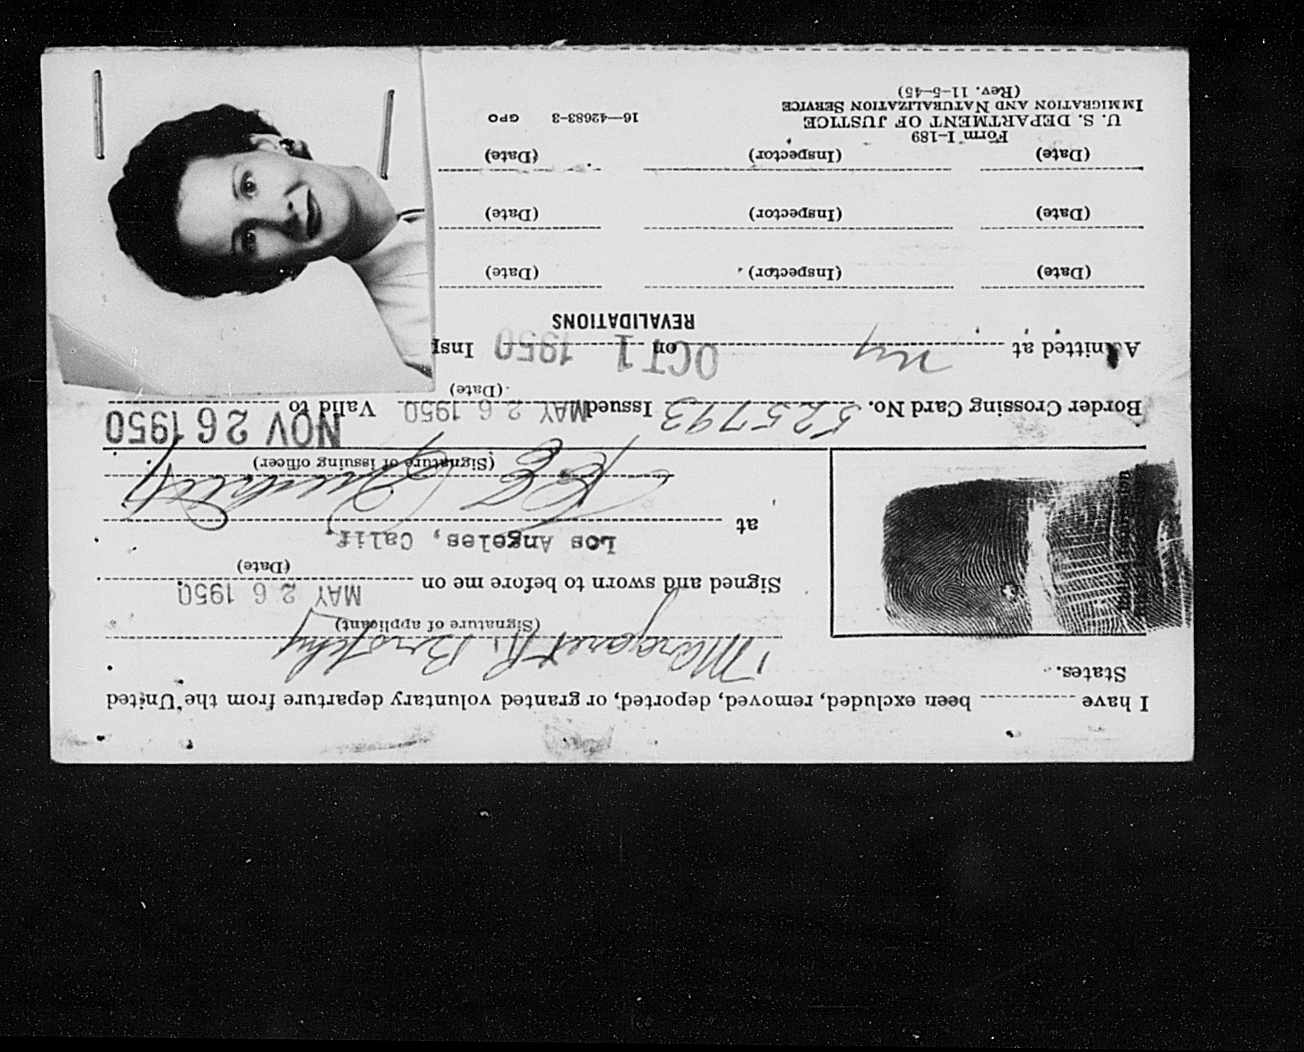 I have ............ been excluded, removed, deported, or granted voluntary departure from the United
States.
Margaret R. Brophy
(Signature of applicant)
Signed and sworn to before me on MAY 26 1950
(Date)
at Los Angeles, Calif.
(Signature of issuing officer)
Border Crossing Card No. 525793 Issued MAY 26 1950 Valid to NOV 26 1950
(Date)
Admitted at NY on OCT 1 1950 Insp
REVALIDATIONS
(Date) (Inspector) (Date)
(Date) (Inspector) (Date)
(Date) (Inspector) (Date)
Form I-189
U. S. DEPARTMENT OF JUSTICE
IMMIGRATION AND NATURALIZATION SERVICE
(Rev. 11-5-45)
16—42683-3 GPO